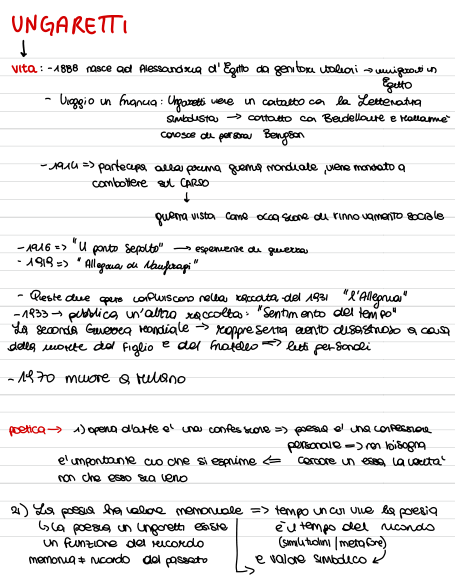 UNGARETTI
↓
vita: - 1888 nasce ad Alessandria d'Egitto da genitori italiani → emigrati in
Egitto
- Viaggio in Francia: Ungaretti viene in contatto con la Letteratura
simbolista → contatto con Baudelaire e Mallarmè
conosce di persona Bergson
- 1914 => partecipa alla prima guerra mondiale, viene mandato a
combattere sul CARSO
↓
guerra vista come occasione di rinnovamento sociale
- 1916 => "Il porto sepolto" → esperienze di guerra
- 1919 => "Allegria di Naufragi"
- Queste due opere confluiscono nella raccolta del 1931 "l'Allegria"
- 1933 → pubblica un'altra raccolta: "Sentimento del tempo"
La seconda Guerra Mondiale → rappresenta evento disastroso a causa
della morte del figlio e del fratello => lutti personali
- 1970 muore a Milano
poetica → 1) opera d'arte e' una confessione => poesia e' una confessione
personale => non bisogna
e' importante ciò che si esprime <= cercare in essa la verità
non che esso sia vero
2) La poesia ha valore memoriale => tempo in cui vive la poesia
↳ la poesia in Ungaretti esiste e' il tempo del ricordo
in funzione del ricordo (similitudini / metafore)
memoria ≠ ricordo del passato → e valore simbolico ↙